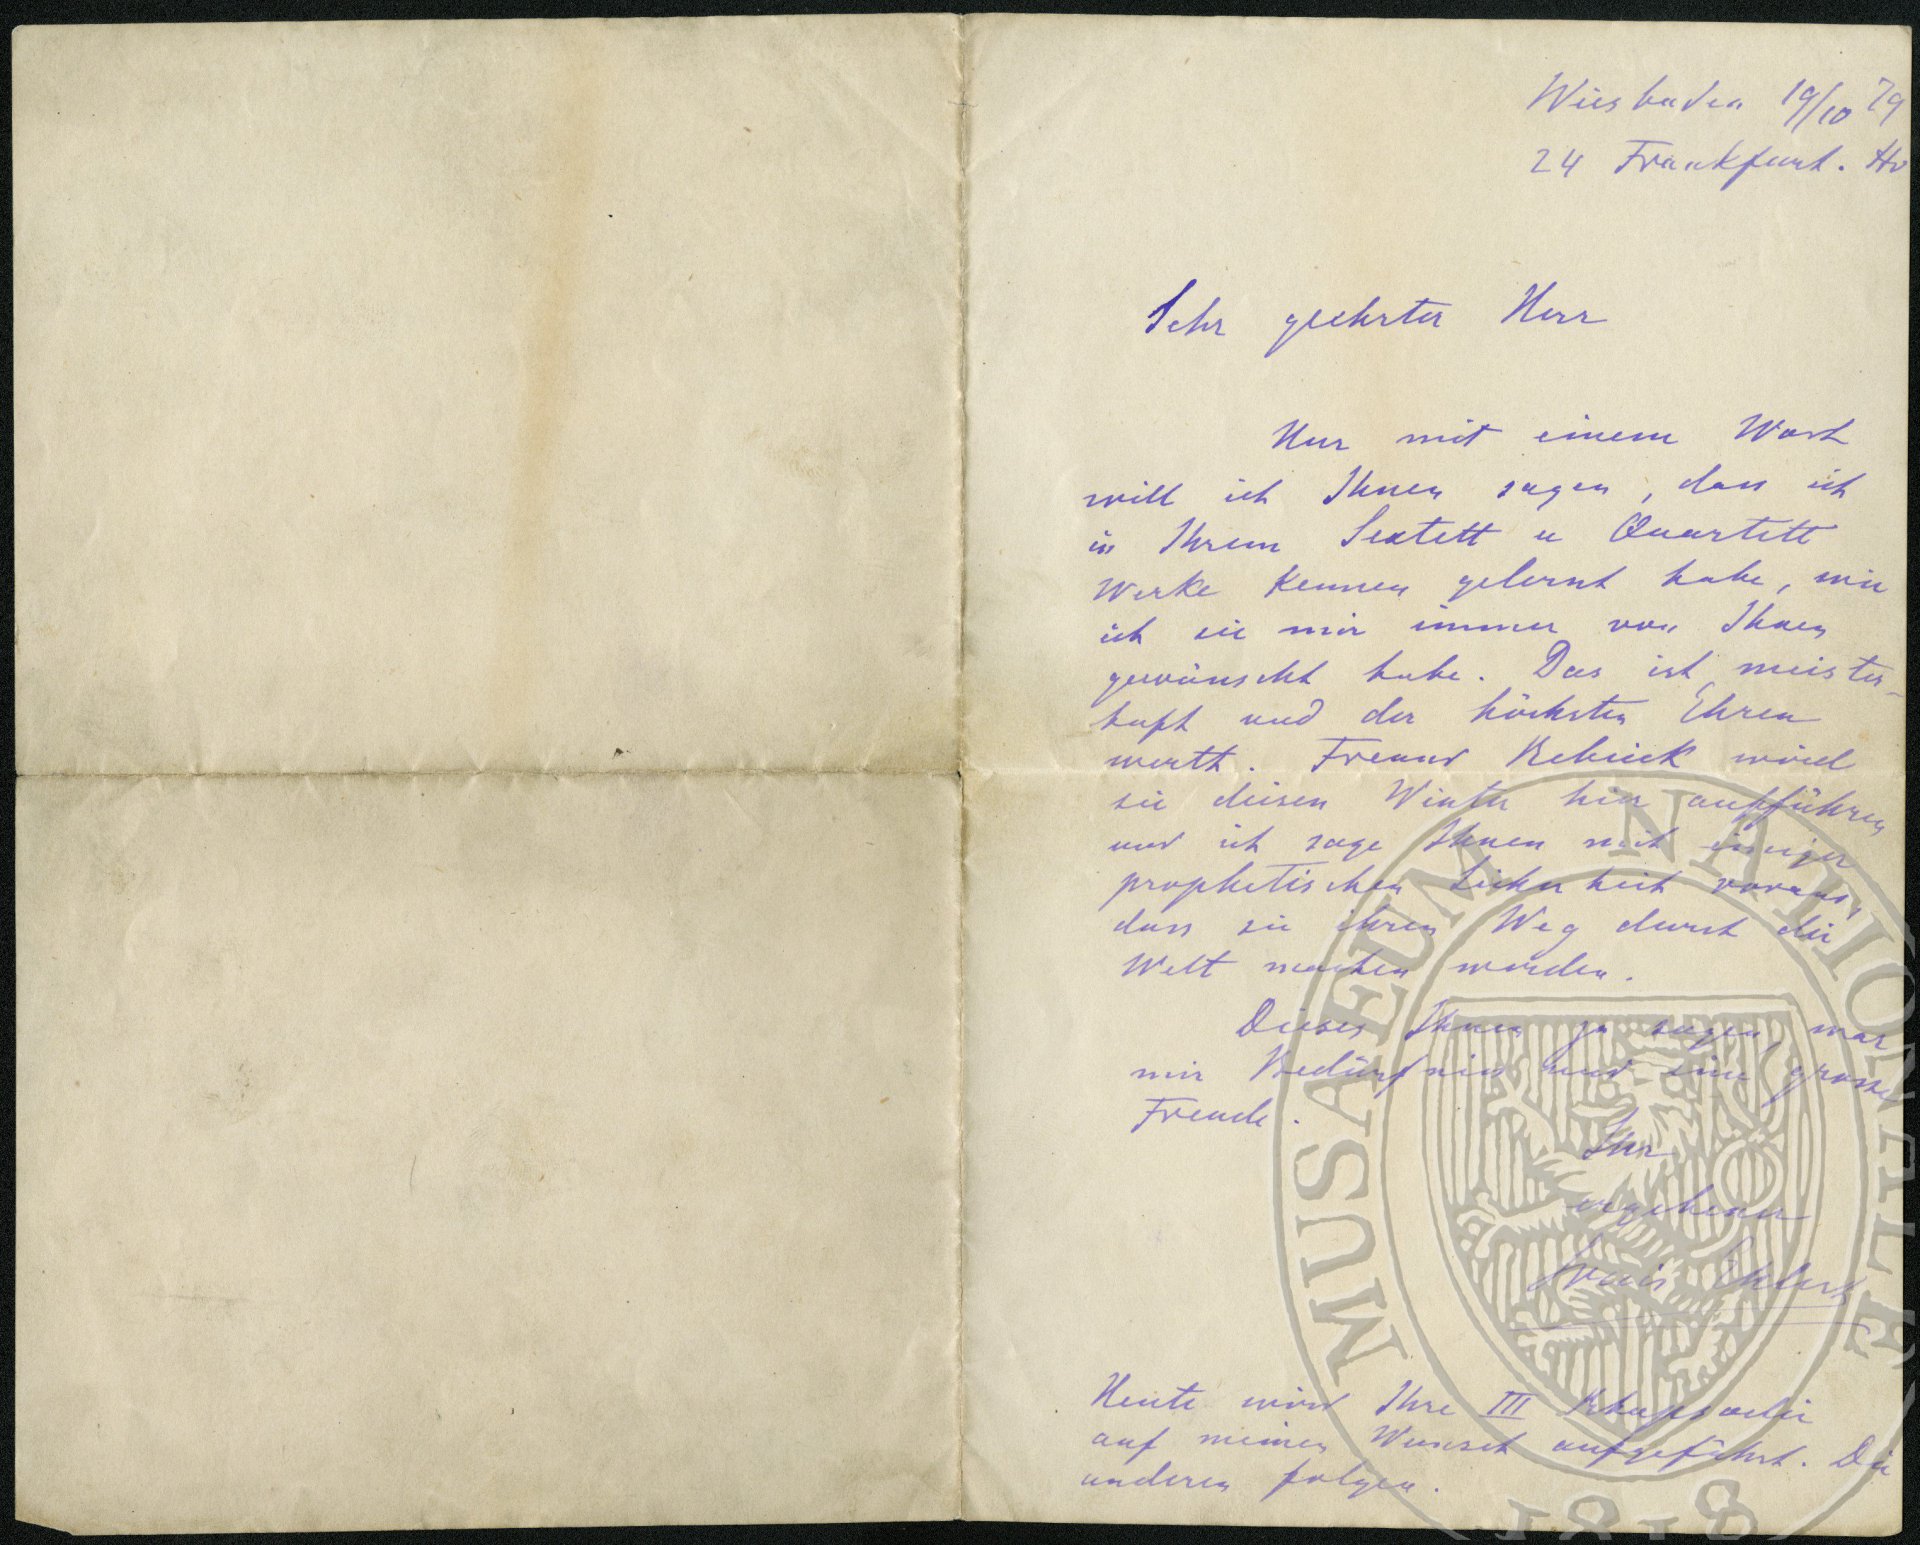 Wiesbaden 19/10 79
24 Frankfurt.
Sehr geehrter Herr
Nur mit einem Wort
will ich Ihnen sagen, dass ich
in Ihrem Sextett u Quartett
Werke kennen gelernt habe, wie
ich sie mir immer von Ihnen
gewünscht habe. Das ist meister-
haft und der höchsten Ehren
werth. Freund Rebicek wird
sie diesen Winter hier aufführen
und ich sage Ihnen mit einiger
prophetischen Sicherheit voraus,
dass sie ihren Weg durch die
Welt machen werden.
Dieses Ihnen zu sagen, war
mir Bedürfniss und eine grosse
Freude.
Ihr
ergebener
Louis Ehlert
Heute wird Ihre III Rhapsodie
auf meinen Wunsch aufgeführt. Die
anderen folgen.
MUSAEUM NATIONALE
1818